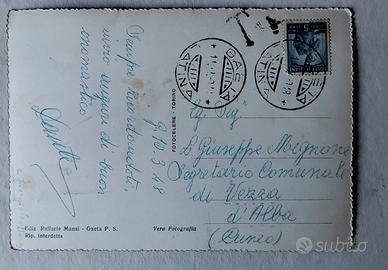 Sempre ricordandoti,
invio auguri di buon
onomastico
G. 10.3.48
FOTOCELERE - TORINO
GAETA
LATINA
Sig.
Giuseppe Mignone
Segretario Comunale
di Vezza
d'Alba
(Cuneo)
Ediz. Raffaele Manzi - Gaeta P. S.
Rip. interdetta
Vera Fotografia
subito